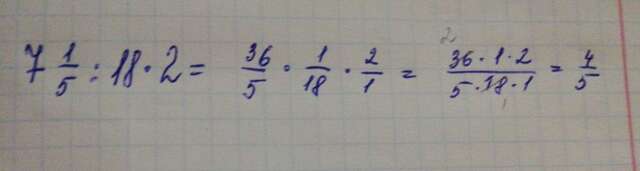 7 1/5 : 18 · 2 = 36/5 · 1/18 · 2/1 = 36 · 1 · 2 / 5 · 18 · 1 = 4/5